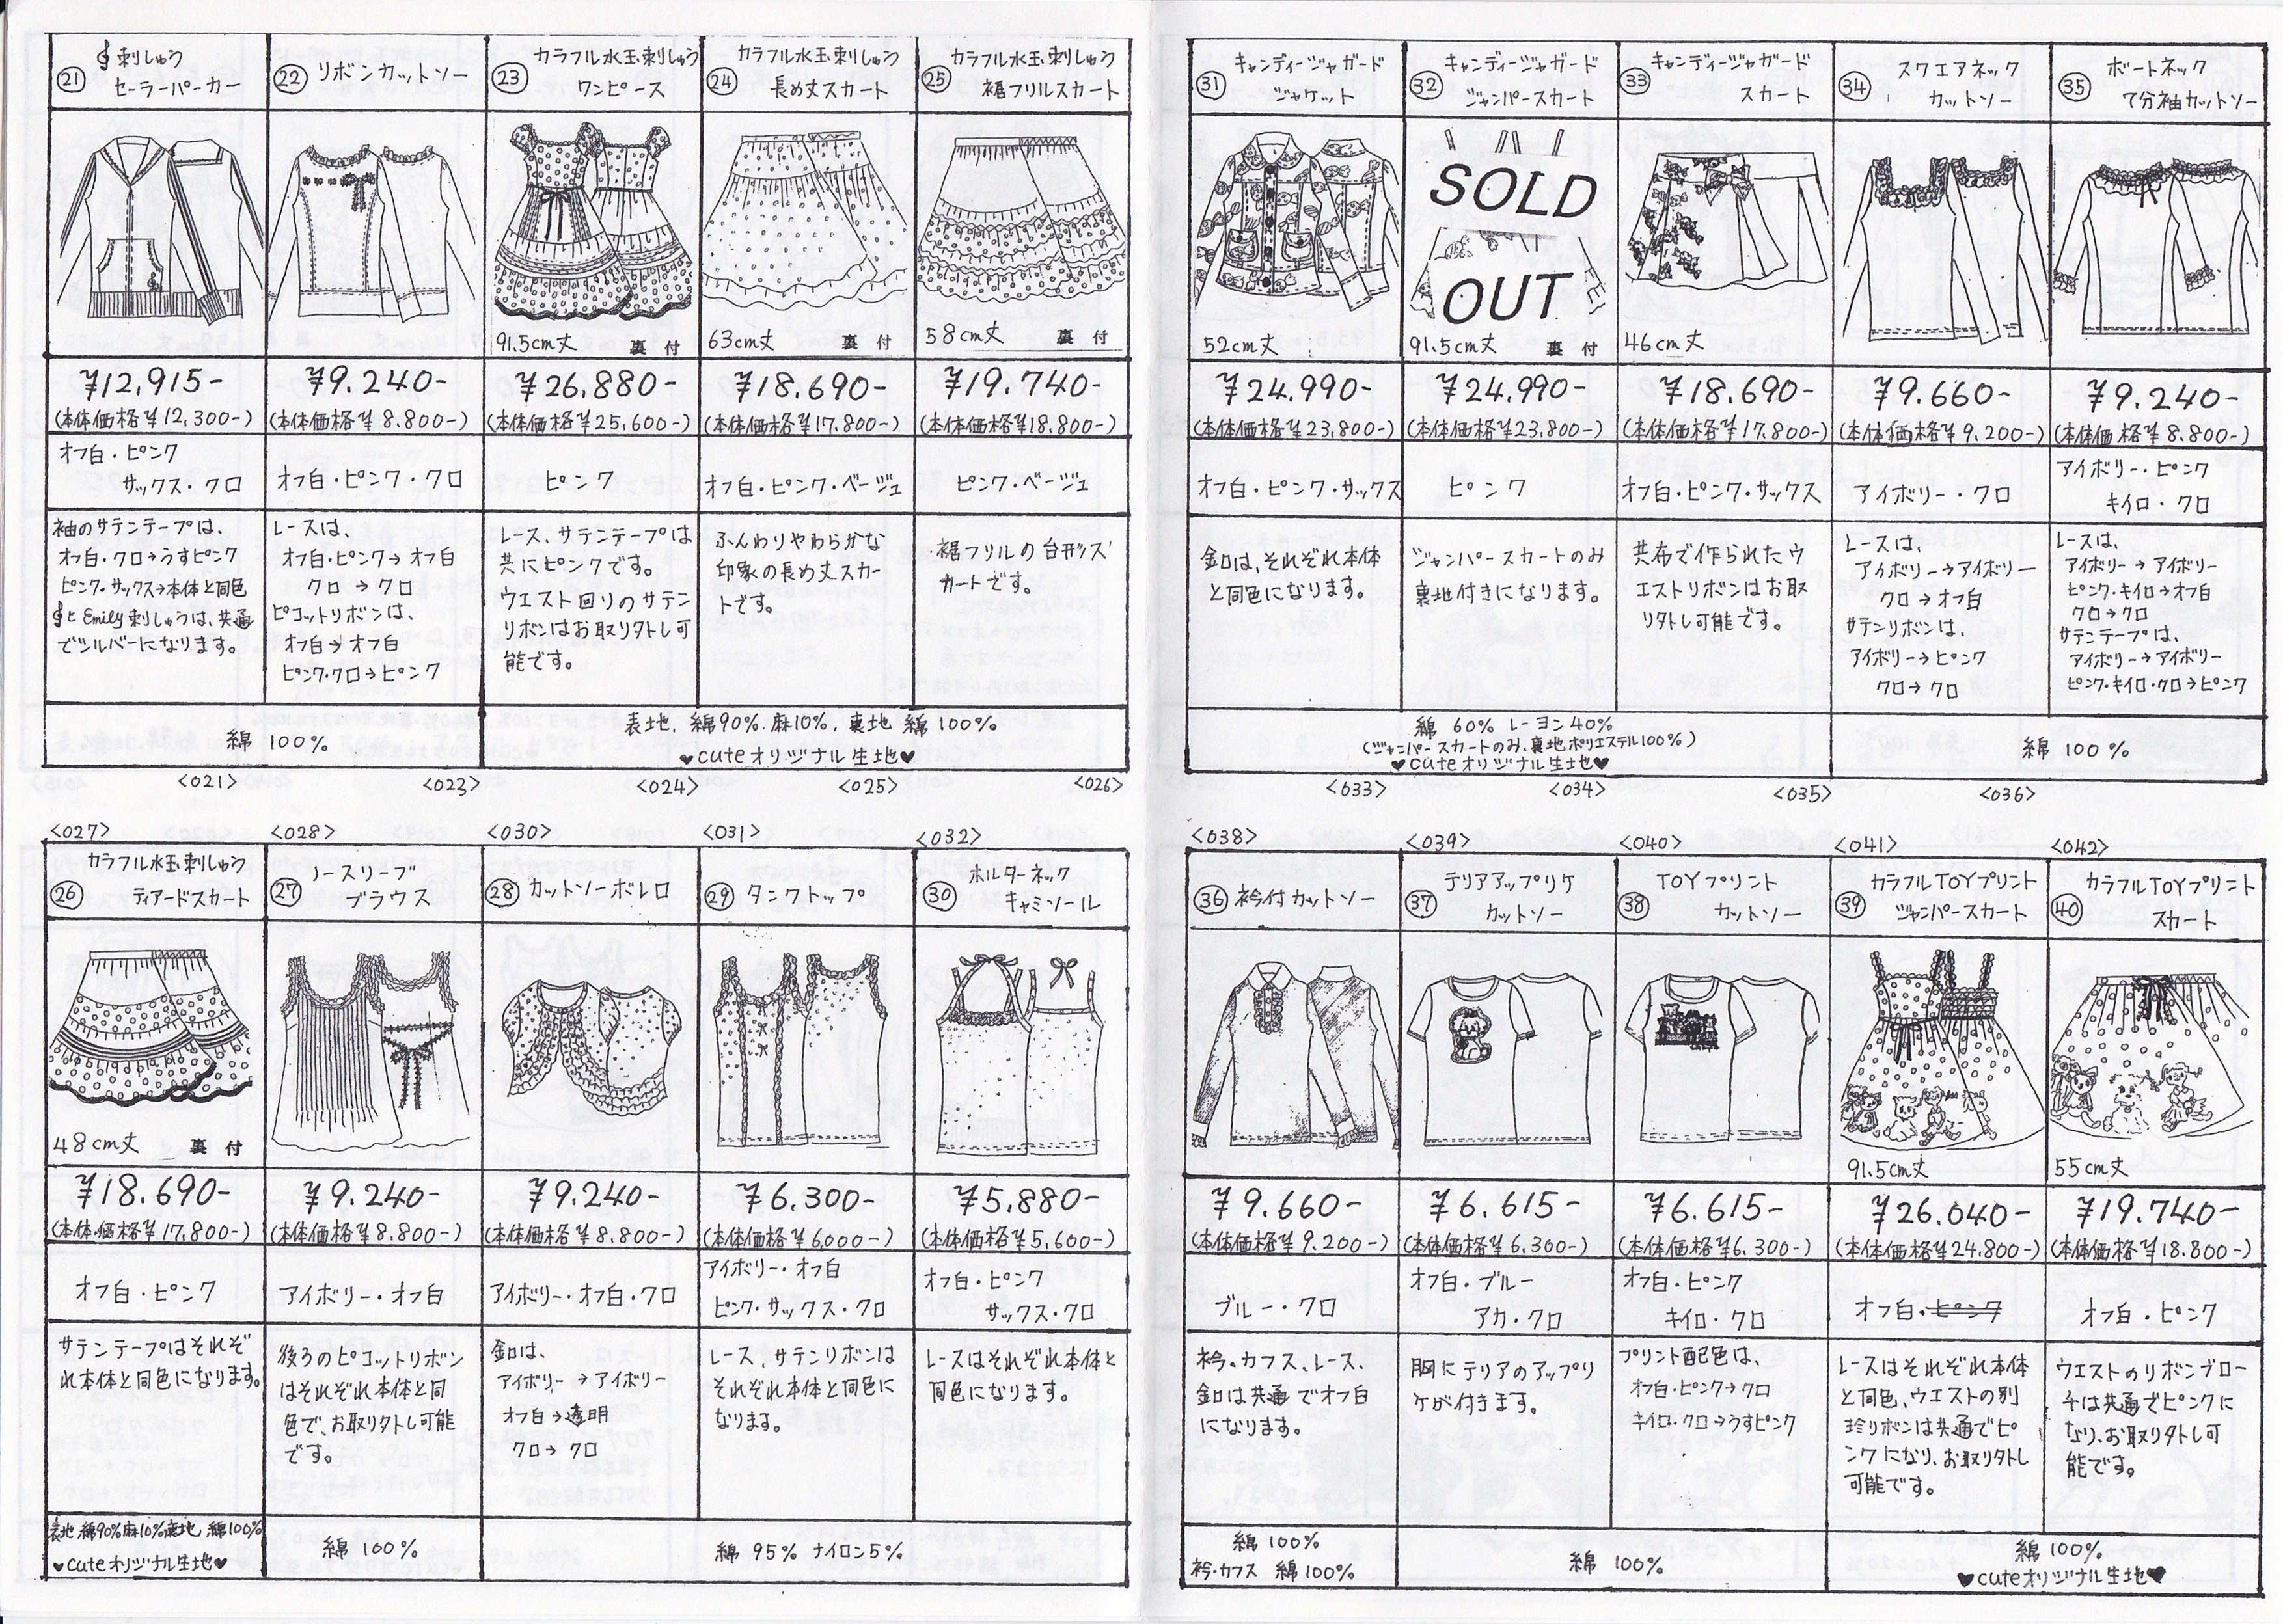 ㉑ 𝄞刺しゅう
セーラーパーカー
¥12,915-
(本体価格¥12,300-)
オフ白・ピンク
サックス・クロ
袖のサテンテープは、
オフ白・クロ→うすピンク
ピンク・サックス→本体と同色
𝄞とEmily刺しゅうは、共通
でシルバーになります。
㉒ リボンカットソー
¥9.240-
(本体価格¥8.800-)
オフ白・ピンク・クロ
レースは、
オフ白・ピンク→オフ白
クロ→クロ
ピコットリボンは、
オフ白→オフ白
ピンク・クロ→ピンク
綿 100%
㉓ カラフル水玉刺しゅう
ワンピース
91.5cm丈 裏付
¥26.880-
(本体価格¥25,600-)
ピンク
レース、サテンテープは
共にピンクです。
ウエスト回りのサテン
リボンはお取り外し可
能です。
㉔ カラフル水玉刺しゅう
長め丈スカート
63cm丈 裏付
¥18.690-
(本体価格¥17,800-)
オフ白・ピンク・ベージュ
ふんわりやわらかな
印象の長め丈スカー
トです。
㉕ カラフル水玉刺しゅう
裾フリルスカート
58cm丈 裏付
¥19.740-
(本体価格¥18,800-)
ピンク・ベージュ
裾フリルの台形ス
カートです。
表地、綿90%.麻10%、裏地 綿100%
♥cuteオリジナル生地♥
<021> <023> <024> <025> <026>
<027> <028> <030> <031> <032>
㉖ カラフル水玉刺しゅう
ティアードスカート
48cm丈 裏付
¥18.690-
(本体価格¥17,800-)
オフ白・ピンク
サテンテープはそれぞ
れ本体と同色になります。
表地 綿90%麻10%裏地 綿100%
♥cuteオリジナル生地♥
㉗ ノースリーブ
ブラウス
¥9.240-
(本体価格¥8.800-)
アイボリー・オフ白
後ろのピコットリボン
はそれぞれ本体と同
色で、お取り外し可能
です。
綿 100%
㉘ カットソーボレロ
¥9.240-
(本体価格¥8.800-)
アイボリー・オフ白・クロ
釦は、
アイボリー→アイボリー
オフ白→透明
クロ→クロ
㉙ タンクトップ
¥6.300-
(本体価格¥6,000-)
アイボリー・オフ白
ピンク・サックス・クロ
レース、サテンリボンは
それぞれ本体と同色に
なります。
㉚ ホルターネック
キャミソール
¥5.880-
(本体価格¥5,600-)
オフ白・ピンク
サックス・クロ
レースはそれぞれ本体と
同色になります。
綿 95% ナイロン5%
㉛ キャンディージャガード
ジャケット
52cm丈
¥24.990-
(本体価格¥23,800-)
オフ白・ピンク・サックス
釦は、それぞれ本体
と同色になります。
㉜ キャンディージャガード
ジャンパースカート
SOLD
OUT
91.5cm丈 裏付
¥24.990-
(本体価格¥23,800-)
ピンク
ジャンパースカートのみ
裏地付きになります。
㉝ キャンディージャガード
スカート
46cm丈
¥18.690-
(本体価格¥17.800-)
オフ白・ピンク・サックス
共布で作られたウ
エストリボンはお取
り外し可能です。
綿 60% レーヨン40%
(ジャンパースカートのみ、裏地ポリエステル100%)
♥cuteオリジナル生地♥
㉞ スクエアネック
カットソー
¥9.660-
(本体価格¥9,200-)
アイボリー・クロ
レースは、
アイボリー→アイボリー
クロ→オフ白
サテンリボンは、
アイボリー→ピンク
クロ→クロ
㉟ ボートネック
7分袖カットソー
¥9.240-
(本体価格¥8.800-)
アイボリー・ピンク
キイロ・クロ
レースは、
アイボリー→アイボリー
ピンク・キイロ→オフ白
クロ→クロ
サテンテープは、
アイボリー→アイボリー
ピンク・キイロ・クロ→ピンク
綿 100%
<033> <034> <035> <036>
<038> <039> <040> <041> <042>
㊱ 衿付カットソー
¥9.660-
(本体価格¥9.200-)
ブルー・クロ
衿・カフス、レース、
釦は共通でオフ白
になります。
綿 100%
衿・カフス 綿100%
㊲ テリアアップリケ
カットソー
¥6.615-
(本体価格¥6,300-)
オフ白・ブルー
アカ・クロ
胸にテリアのアップリ
ケが付きます。
㊳ TOYプリント
カットソー
¥6.615-
(本体価格¥6,300-)
オフ白・ピンク
キイロ・クロ
プリント配色は、
オフ白・ピンク→クロ
キイロ・クロ→うすピンク
綿 100%
㊴ カラフルTOYプリント
ジャンパースカート
91.5cm丈
¥26.040-
(本体価格¥24.800-)
オフ白・ピンク
レースはそれぞれ本体
と同色、ウエストの別
珍リボンは共通でピ
ンクになり、お取り外し
可能です。
㊵ カラフルTOYプリント
スカート
55cm丈
¥19.740-
(本体価格¥18.800-)
オフ白・ピンク
ウエストのリボンブロー
チは共通でピンクに
なり、お取り外し可
能です。
綿 100%
♥cuteオリジナル生地♥